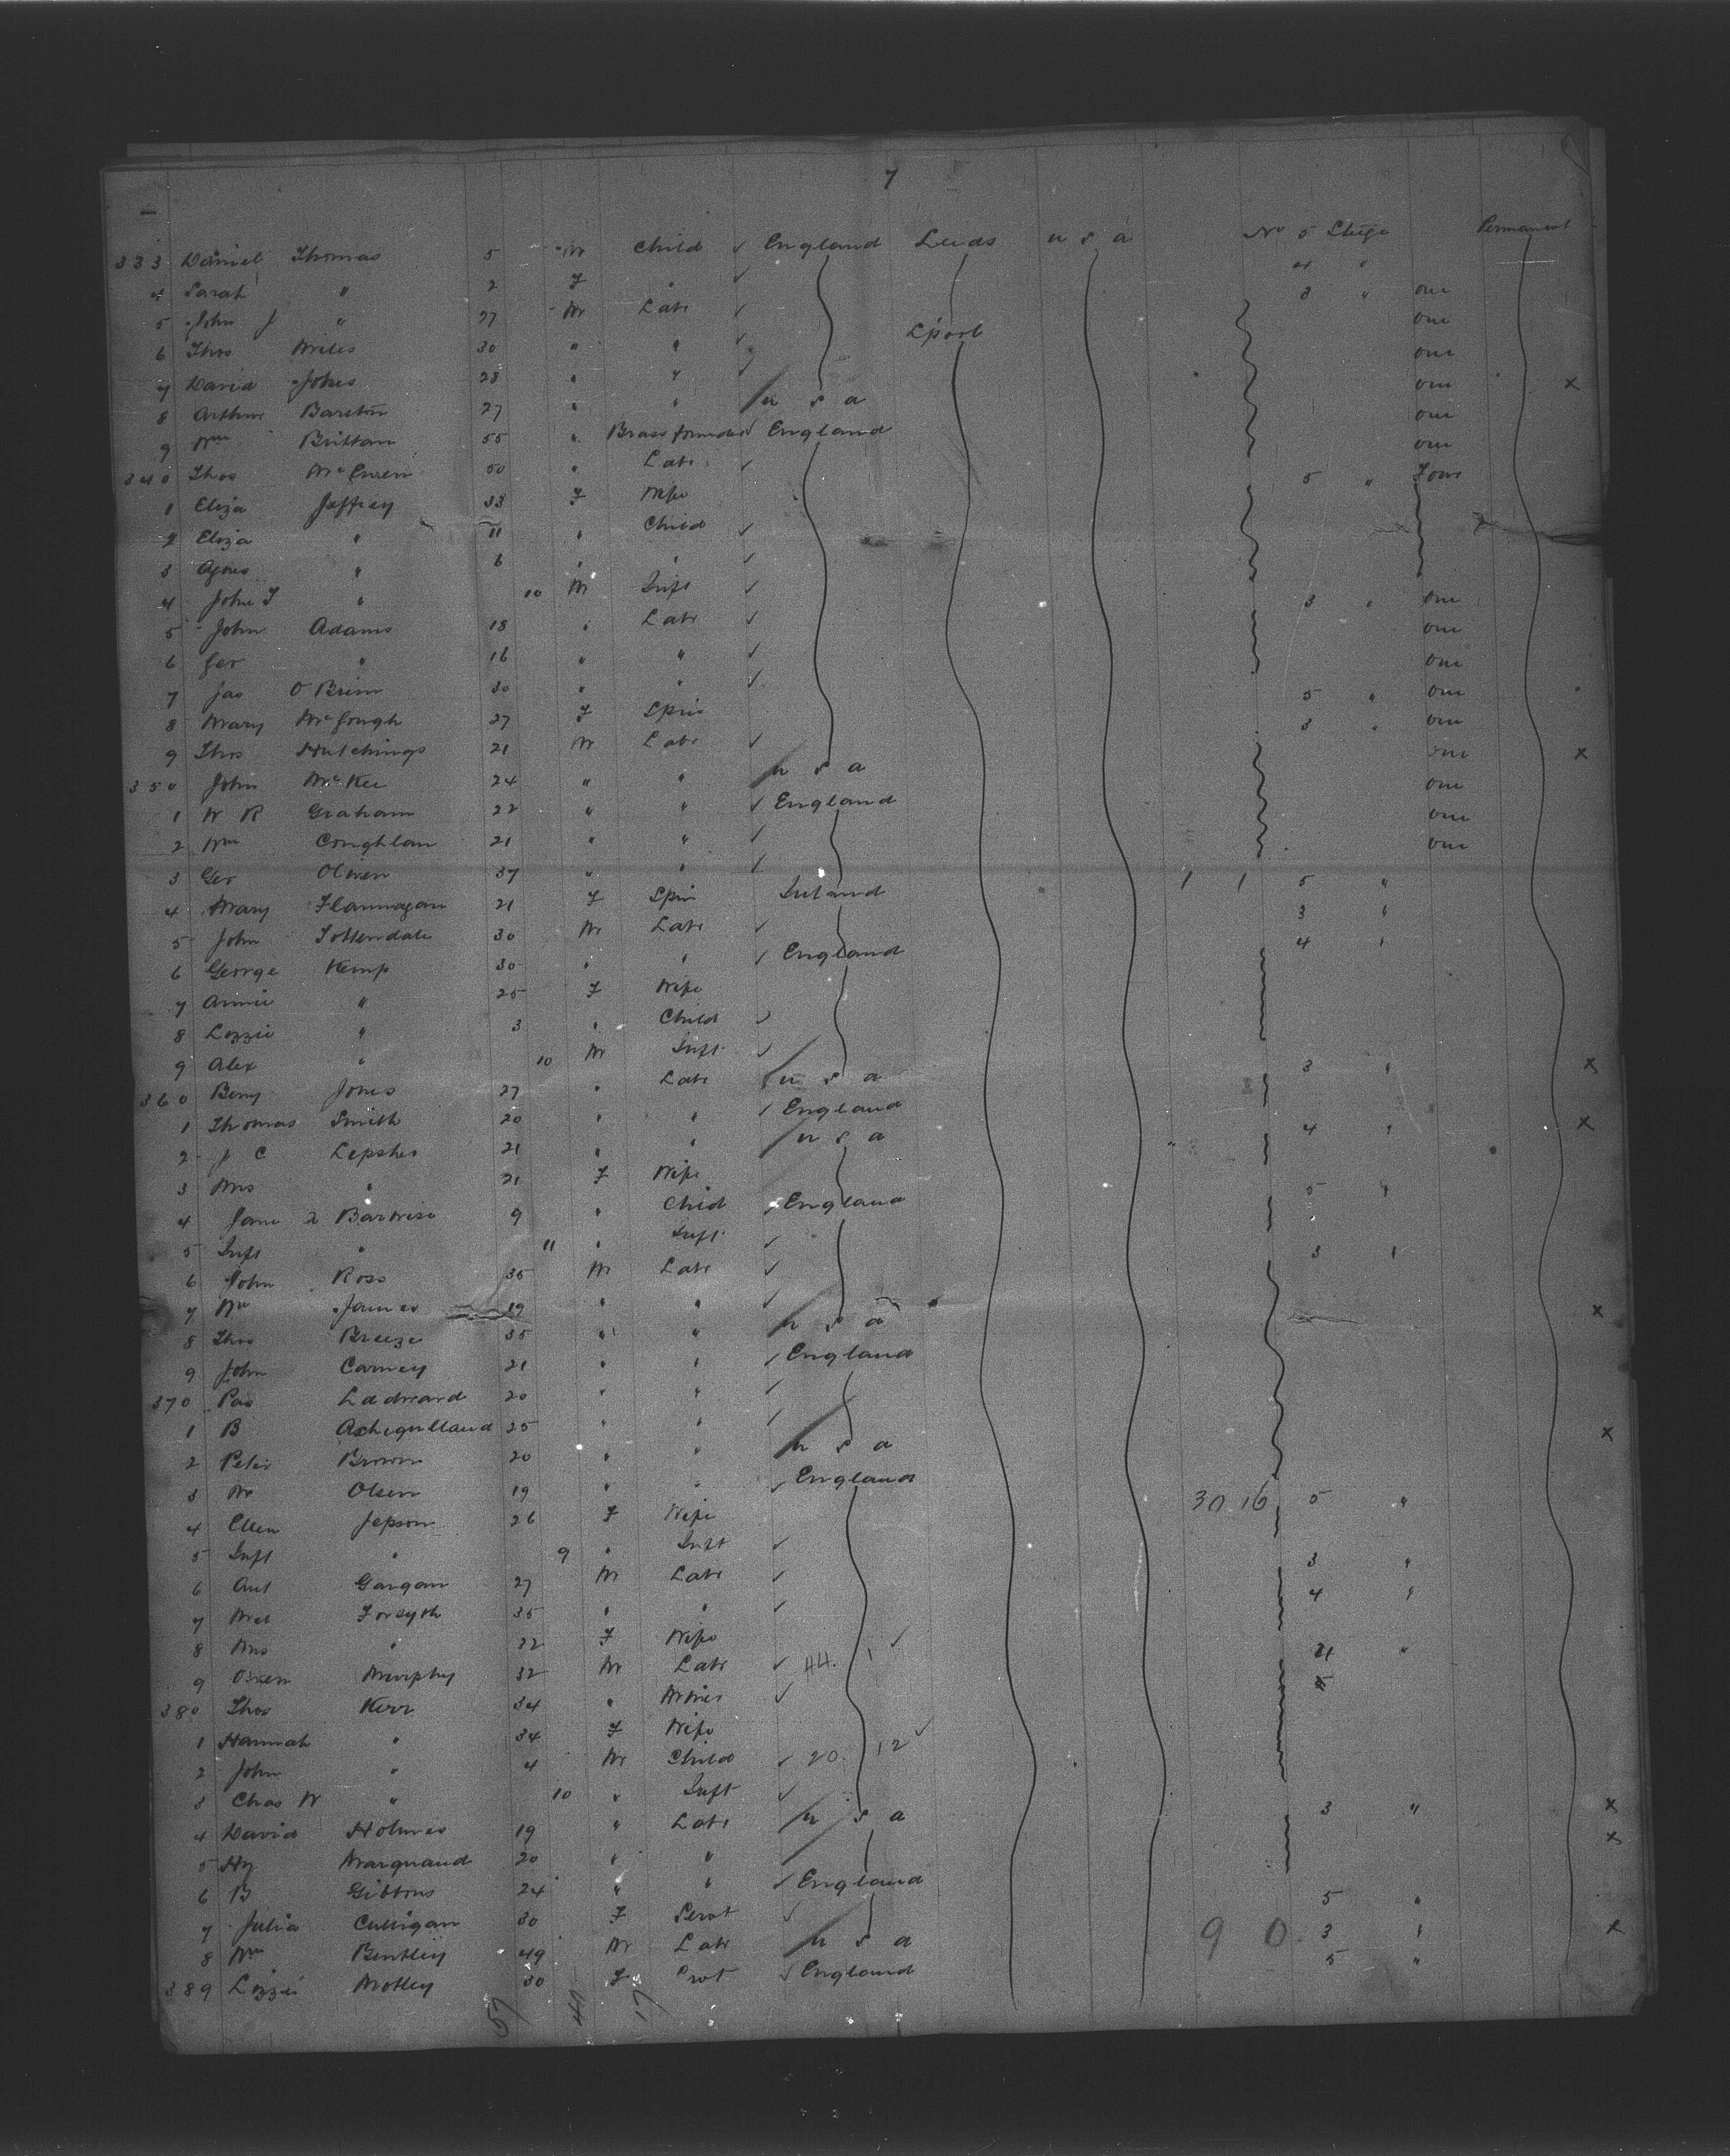 7
333 Daniel Thomas 5 M Child ✓ England Leeds U S A No 5 Stege Permanent
4 Sarah " 2 F " ✓ 4 "
5 John J " 27 M Labr ✓ 3 " one
6 Thos Miles 30 " " ✓ L'pool one
7 David Jones 28 " " ✓ one
8 Arthur Barston 27 " " U S A one X
9 Wm Brittan 55 " Brass founder ✓ England one
340 Thos McEwen 50 " Labr ✓ one
1 Eliza Jeffrey 33 F Wife 5 " Four
2 Eliza " 11 " Child ✓
3 Agnes " 6 " " ✓
4 John T " 10 M Inft ✓
5 John Adams 18 " Labr ✓ 3 " one
6 Geo " 16 " " ✓ one
7 Jas O Brien 30 " " ✓ one
8 Mary McGough 27 F Spin 5 " one
9 Thos Hutchings 21 M Labr ✓ 3 " one
350 John McKee 24 " " U S A one X
1 W R Graham 22 " " ✓ England one
2 Wm Coughlan 21 " " ✓ one
3 Geo Oliver 37 " " ✓ one
4 Mary Flannagan 21 F Spin Ireland 1 1 5 "
5 John Tottendale 30 M Labr ✓ 3 "
6 George Kemp 30 " " ✓ England 4 "
7 Annie " 25 F Wife
8 Lizzie " 3 " Child ✓
9 Alex " 10 M Inft ✓
360 Benj Jones 27 " Labr U S A 3 " X
1 Thomas Smith 20 " " ✓ England
2 J C " 21 " " U S A 4 " X
3 Mrs " 21 F Wife
4 Jane 9 " Child ✓ England 5 "
5 Inft " 11 " Inft ✓
6 John Ross 35 M Labr ✓ 3 "
7 Wm James 19 " " ✓
8 Thos Breeze 35 " " U S A X
9 John Carney 21 " " ✓ England
370 Ladward 20 " " ✓
1 B 25 " " ✓
2 Peter Brown 20 " " U S A X
3 Olsen 19 " " ✓ England
4 Ellen Jepson 26 F Wife 30 16 5 "
5 Inft " 9 " Inft ✓
6 Ant Gargan 27 M Labr ✓ 3 "
7 Forsyth 35 " " ✓ 4 "
8 Mrs " 22 F Wife
9 Owen Murphy 32 M Labr ✓ 44. 1 ✓ "
380 Thos Kerr 34 " Miner ✓
1 Hannah " 34 F Wife
2 John " 4 M Child ✓ 20. 12 ✓
3 Chas W " 10 " Inft ✓
4 David Holmes 19 " Labr U S A 3 " X
5 Hy Marquand 20 " " X
6 B Gibbons 24 " " ✓ England
7 Julia Culligan 30 F Servt ✓ 5 "
8 Wm Bentley 49 M Labr U S A 9 0 3 " X
389 Lizzie Motley 30 F ✓ England 5 "
57 40 17